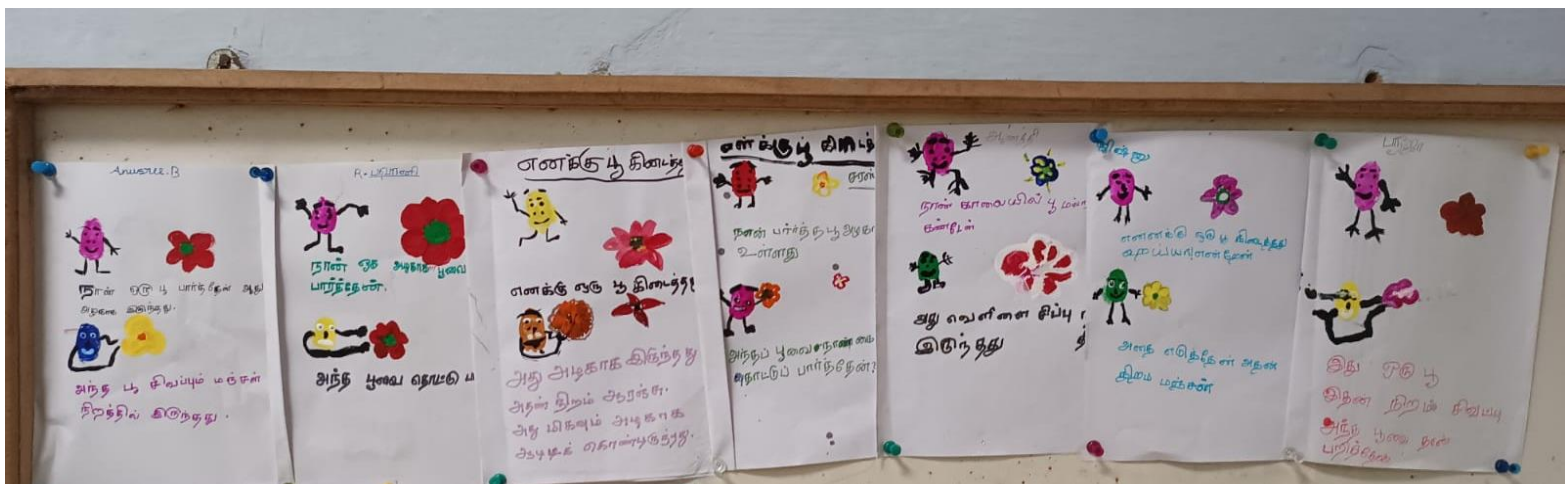 Anusree.B
நான் ஒரு பூ பார்த்தேன் அது
அழகாக இருந்தது.
அந்த பூ சிவப்பும் மஞ்சள்
நிறத்தில் இருந்தது.
R.
நான் ஒரு அடிகாக பூவை
பார்த்தேன்.
அந்த பூவை தொட்டு
எனக்கு பூ கிடைத்த
எனக்கு ஒரு பூ கிடைத்த
அது அடிகாக இருந்தது
அதன் நிறம் ஆரஞ்சு.
அது மிகவும் அடிகாக
பூ
நான் பார்த்த பூ
உள்ளது
அந்தப் பூவை நான்
தொட்டுப் பார்த்தேன்
நான் காலையில் பூ
கண்டேன்
அது சிப்பு
இருந்தது
ஒரு பூ கிடைத்தது
அதை எடுத்தேன் அதன்
நிறம் மஞ்சள்
இது ஒரு பூ
இதன் நிறம் சிவப்பு
அந்த பூவை நான்
பறித்தேன்